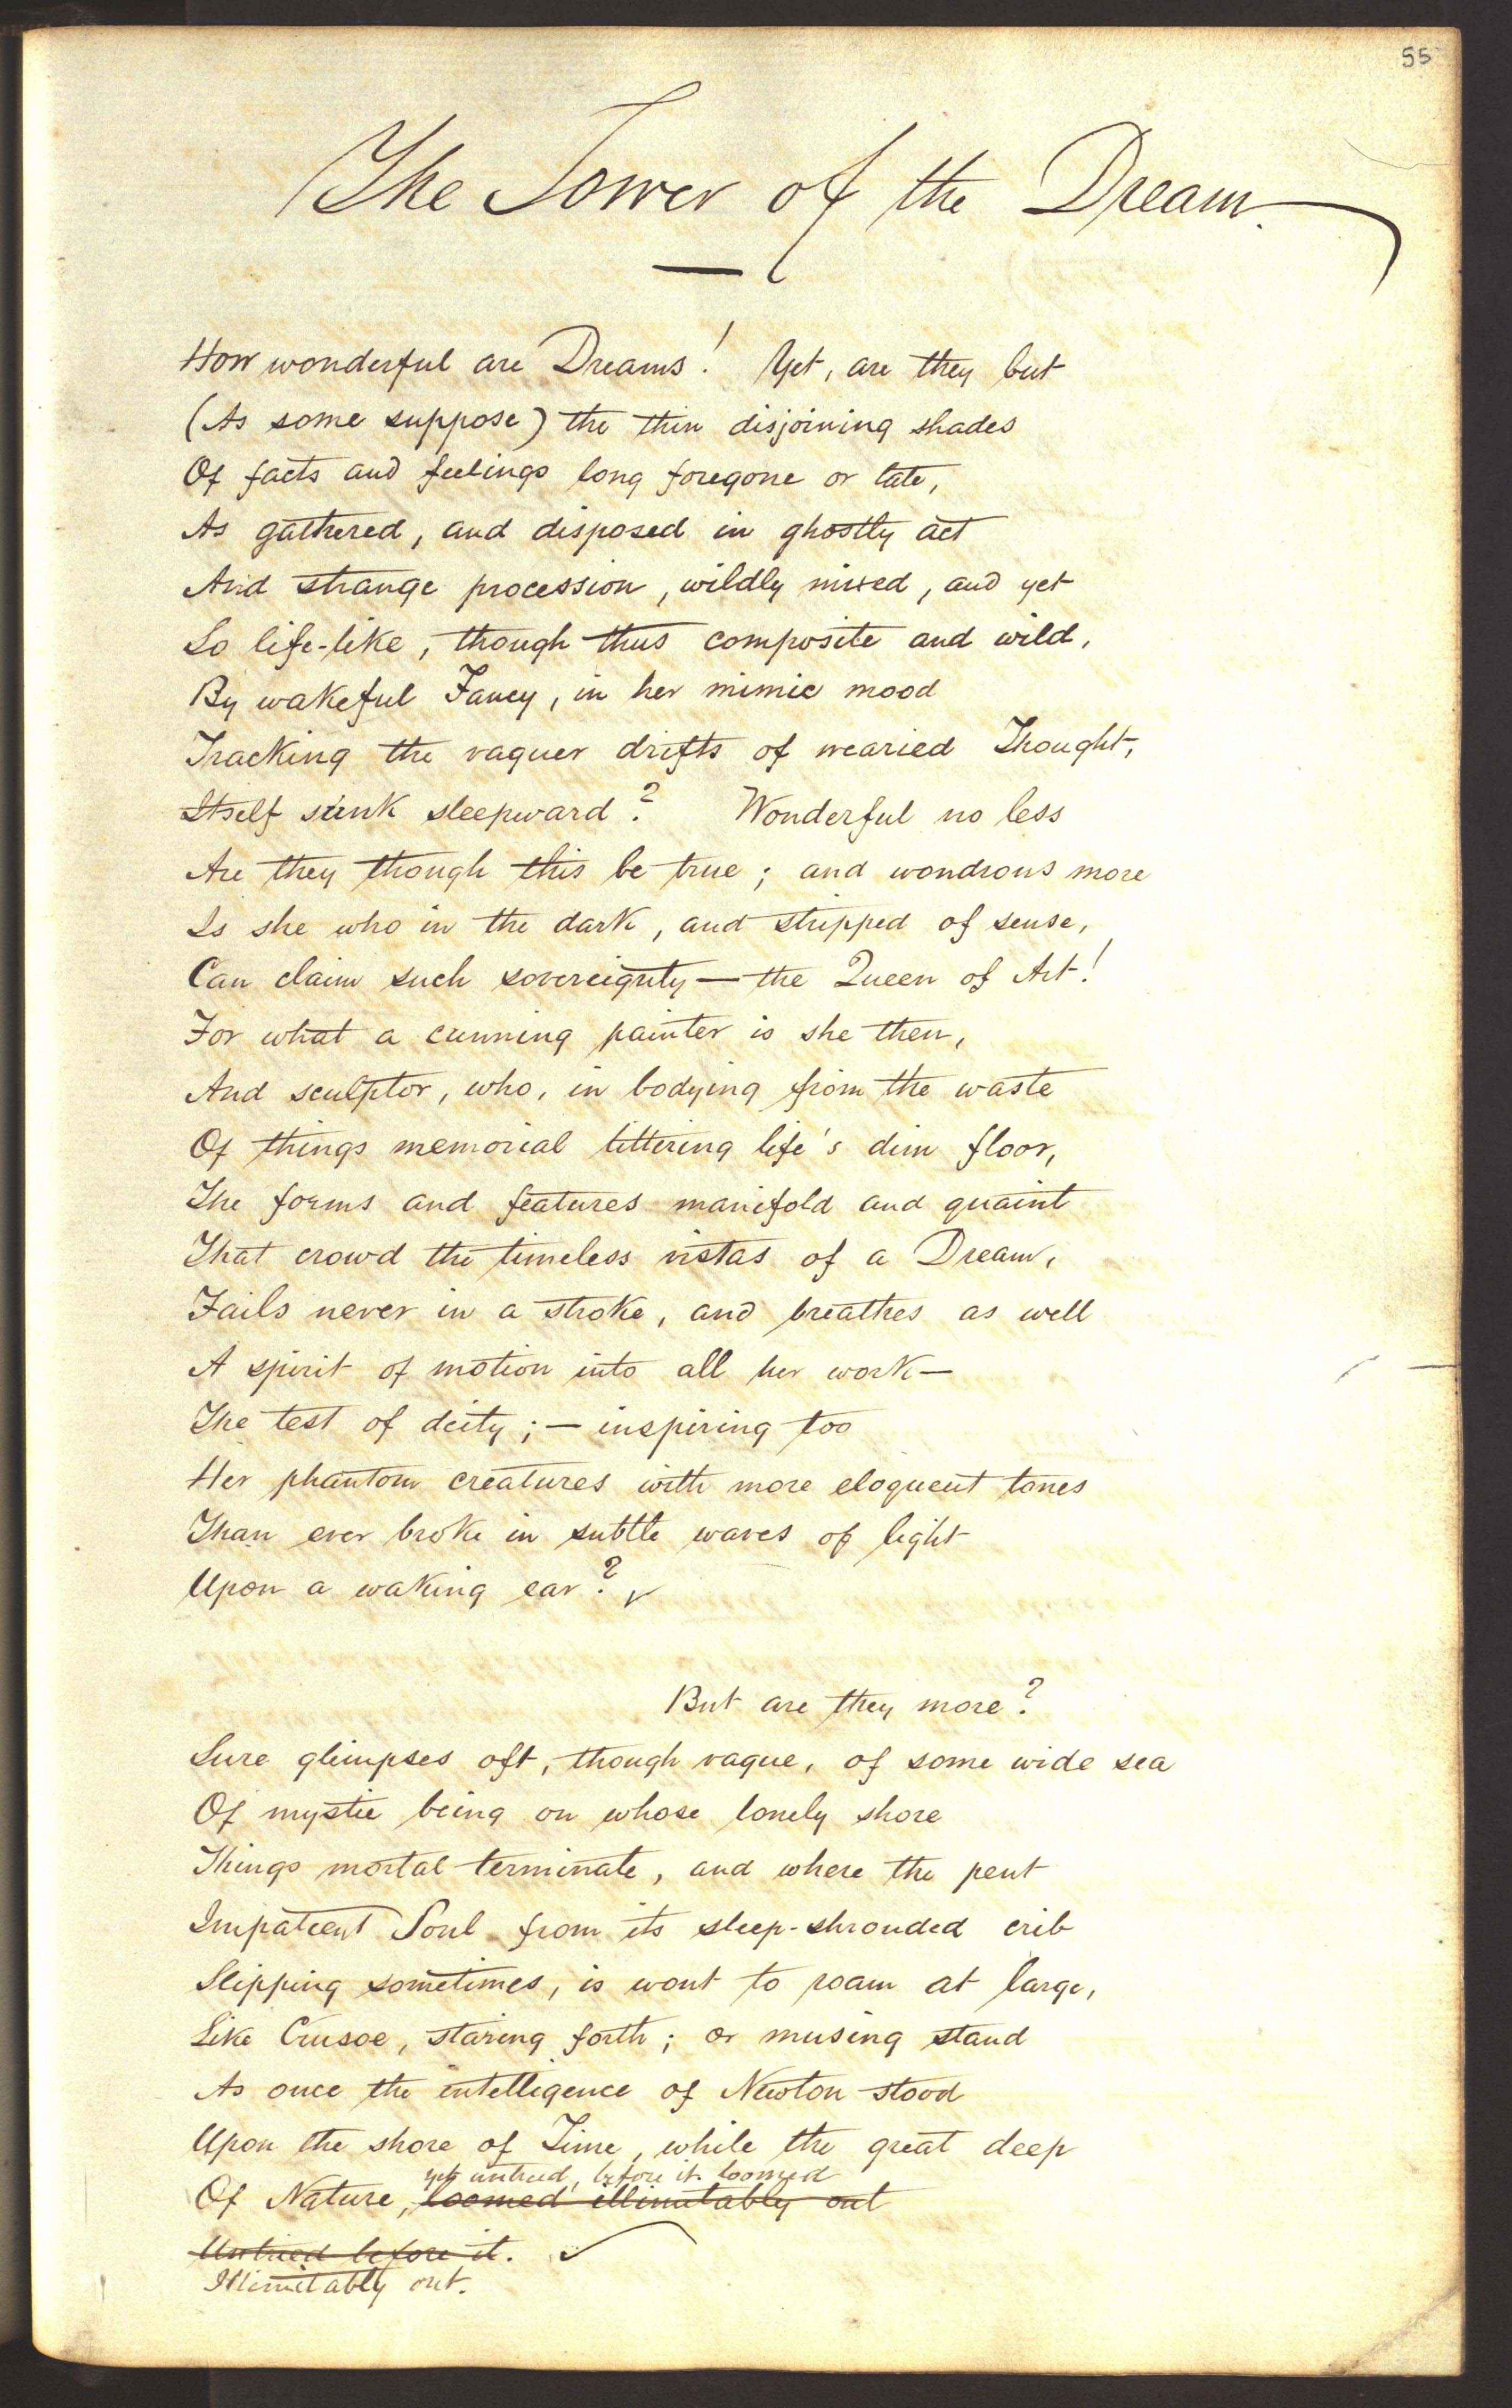 55
The Tower of the Dream.
How wonderful are Dreams! Yet, are they but
(As some suppose) the thin disjoining shades
Of facts and feelings long foregone or late,
As gathered, and disposed in ghostly act
And strange procession, wildly mixed, and yet
So life-like, though thus composite and wild,
By wakeful Fancy, in her mimic mood
Tracking the vaguer drifts of wearied Thought,
Itself sunk sleepward? Wonderful no less
Are they though this be true; and wondrous more
Is she who in the dark, and stripped of sense,
Can claim such sovereignty—the Queen of Art!
For what a cunning painter is she then,
And sculptor, who, in bodying from the waste
Of things memorial littering life's dim floor,
The forms and features manifold and quaint
That crowd the timeless vistas of a Dream,
Fails never in a stroke, and breathes as well
A spirit of motion into all her work—
The test of deity;—inspiring too
Her phantom creatures with more eloquent tones
Than ever broke in subtle waves of light
Upon a waking ear?
But are they more?
Sure glimpses oft, though vague, of some wide sea
Of mystic being on whose lonely shore
Things mortal terminate, and where the pent
Impatient Soul from its sleep-shrouded crib
Slipping sometimes, is wont to roam at large,
Like Crusoe, staring forth; or musing stand
As once the intelligence of Newton stood
Upon the shore of Time, while the great deep
yet untried, before it loomed
Of Nature, loomed illimitably out
Untried before it.
Illimitably out.